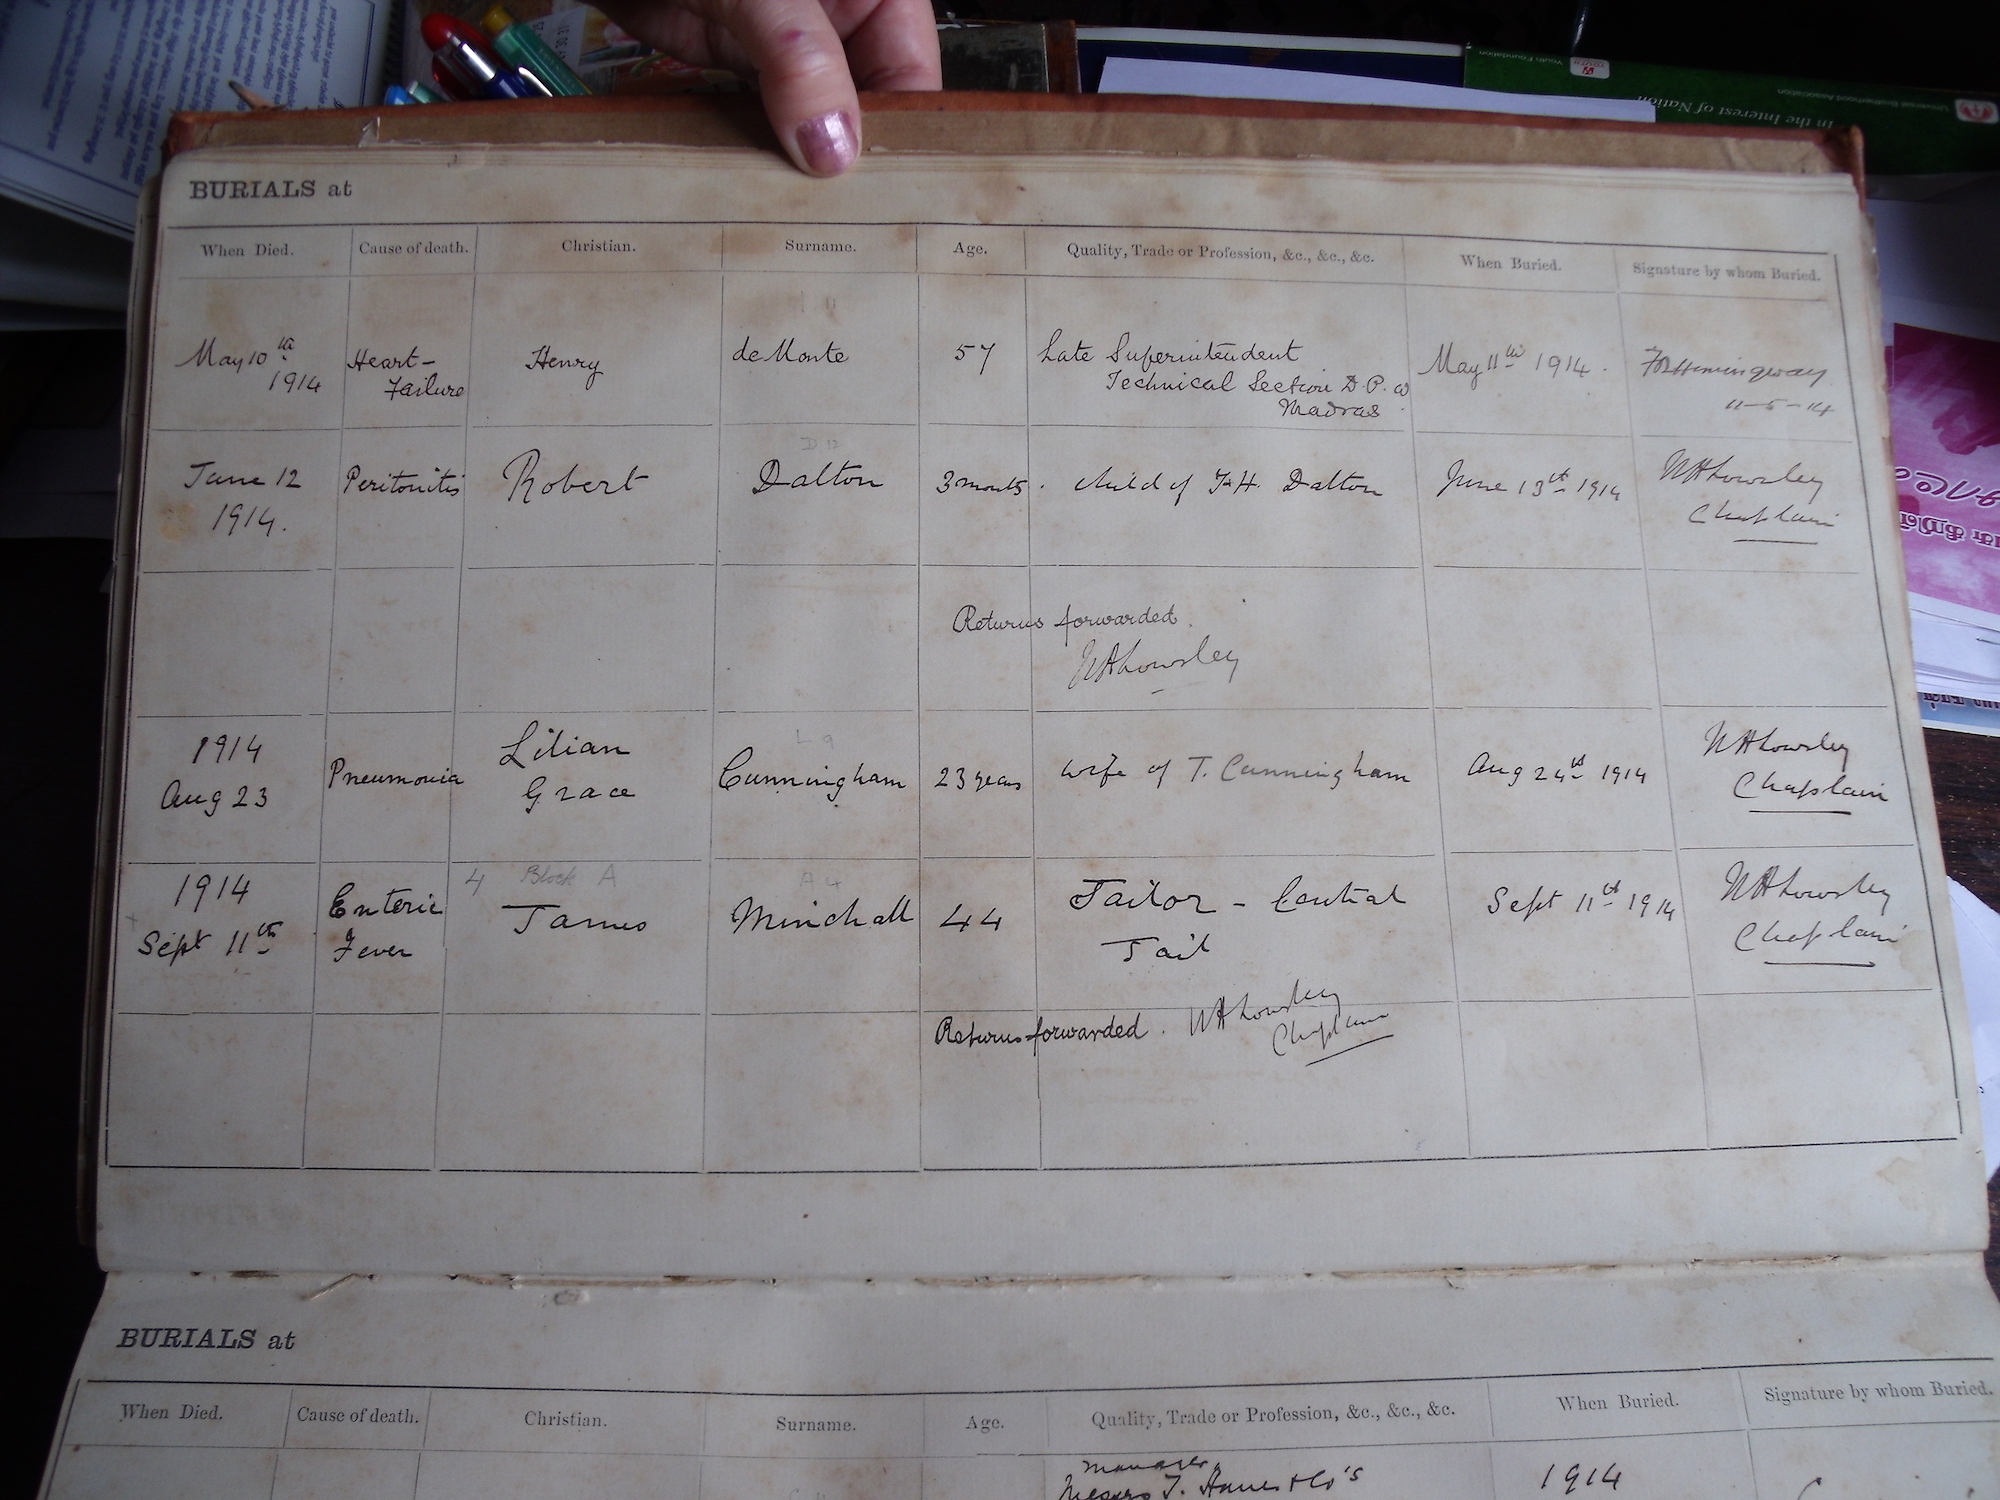 Youth Foundation
Universal Brotherhood Association
In the Interest of Nation
BURIALS at
When Died. Cause of death. Christian. Surname. Age. Quality, Trade or Profession, &c., &c., &c. When Buried. Signature by whom Buried.
May 10th 1914 Heart-Failure Henry de Monte 57 Late Superintendent May 11th 1914. Hemingway
Technical Section D.P.W
Madras. 11-5-14
D 12
June 12 Peritonitis Robert Dalton 3 months. child of F.H. Dalton June 13th 1914 W H Lowsley
1914. Chaplain
Returns forwarded.
W H Lowsley
L 9
1914 Lilian W H Lowsley
Aug 23 Pneumonia Grace Cunningham 23 years wife of T. Cunningham Aug 24th 1914 Chaplain
4 Block A A 4
1914 Enteric James Minchall 44 Jailor - Central Sept 11th 1914 W H Lowsley
Sept 11th Fever Jail Chaplain
Returns forwarded. W H Lowsley
Chaplain
BURIALS at
When Died. Cause of death. Christian. Surname. Age. Quality, Trade or Profession, &c., &c., &c. When Buried. Signature by whom Buried.
Manager 1914
Messrs T. & Co's